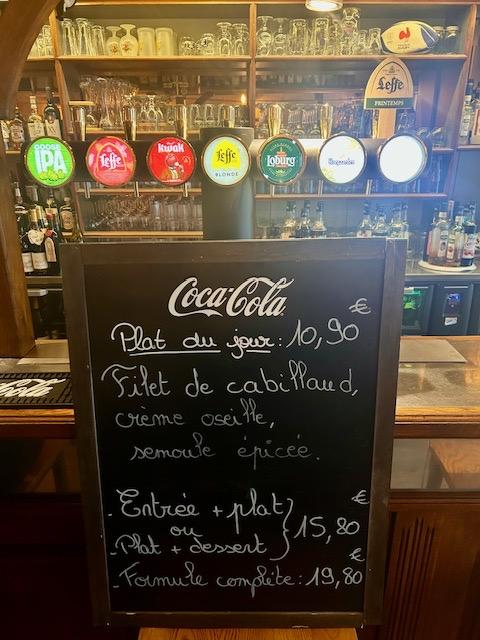 Leffe
PRINTEMPS
GOOSE
IPA
Leffe
Kwak
Leffe
BLONDE
Loburg
Hoegaarden
Coca-Cola
Plat du jour : 10,90 €
Filet de cabillaud,
crème oseille,
semoule épicée.
- Entrée + plat
ou
- Plat + dessert } 15,80 €
- Formule complète : 19,80 €